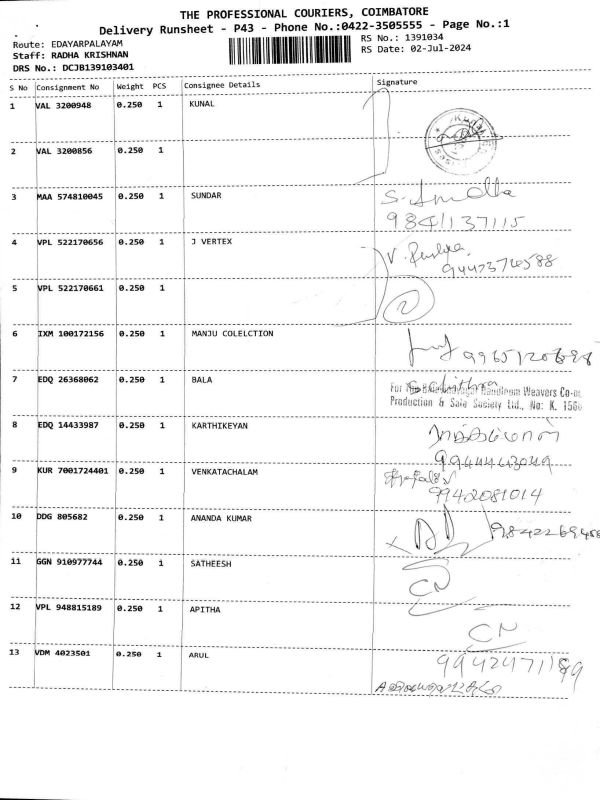 THE PROFESSIONAL COURIERS, COIMBATORE
Delivery Runsheet - P43 - Phone No.:0422-3505555 - Page No.:1
Route: EDAYARPALAYAM
RS No.: 1391034
Staff: RADHA KRISHNAN
RS Date: 02-Jul-2024
DRS No.: DCJB139103401
S No Consignment No Weight PCS Consignee Details Signature
1 VAL 3200948 0.250 1 KUNAL
2 VAL 3200856 0.250 1
3 MAA 574810045 0.250 1 SUNDAR
9841137115
4 VPL 522170656 0.250 1 J VERTEX
5 VPL 522170661 0.250 1
2
6 IXM 100172156 0.250 1 MANJU COLELCTION
7 EDQ 26368062 0.250 1 BALA
Weavers Co-op
Production & Sale Society Ltd., No: K. 1566
8 EDQ 14433987 0.250 1 KARTHIKEYAN
9 KUR 7001724401 0.250 1 VENKATACHALAM
9942081014
10 DDG 805682 0.250 1 ANANDA KUMAR
11 GGN 910977744 0.250 1 SATHEESH
CN
12 VPL 948815189 0.250 1 APITHA
CN
13 VDM 4023501 0.250 1 ARUL